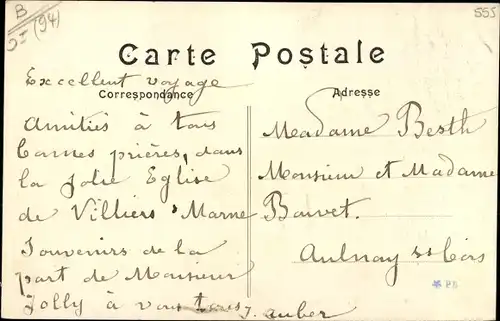 B
(94)
555
Carte Postale
Excellent voyage
Correspondance
Adresse
Amitiés à tous
bonnes prières, dans
la Jolie Eglise
de Villiers s/ Marne
Souvenirs de la
part de Monsieur
Jolly à vous tous
J. Auber
Madame Berth
Monsieur et Madame
Bouvet.
Aulnay ss Bois
PB